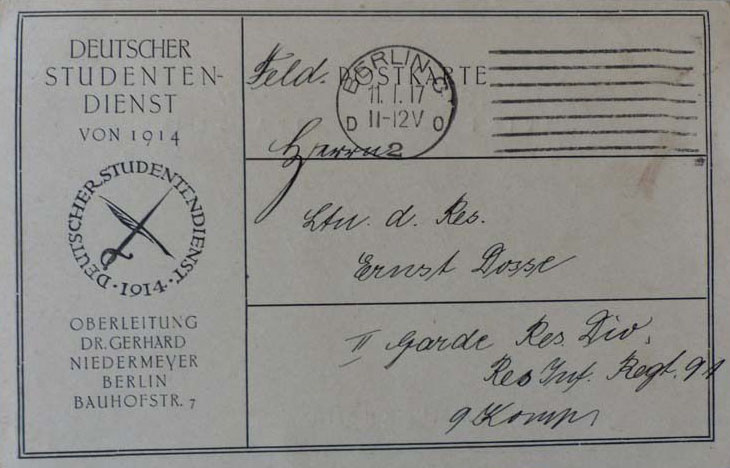 DEUTSCHER
STUDENTEN-
DIENST
VON 1914
DEUTSCHER STUDENTENDIENST
·1914·
OBERLEITUNG
DR. GERHARD
NIEDERMEYER
BERLIN
BAUHOFSTR. 7
Feld. POSTKARTE
BERLIN. C.
11.1.17
D 11-12V O
2
Herrn
Ltn. d. Res.
Ernst Dosse
II Garde Res. Div.
Res Inf. Regt. 91
9 Komp